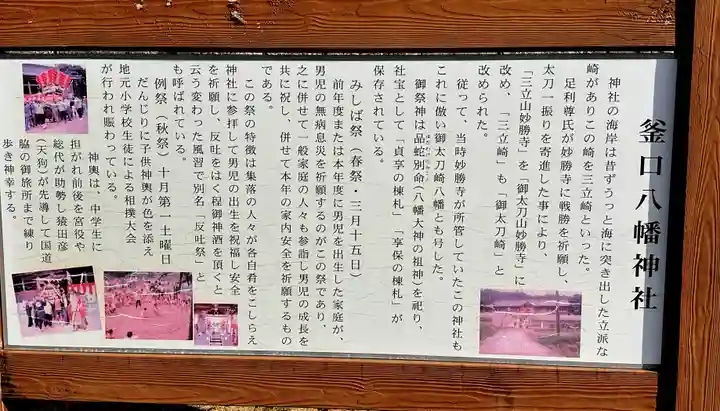 釜口八幡神社
神社の海岸は昔ずうっと海に突き出した立派な
崎がありこの崎を三立崎といった。
足利尊氏が妙勝寺に戦勝を祈願し、
太刀一振りを寄進した事により、
「三立山妙勝寺」を「御太刀山妙勝寺」に
改め、「三立崎」も「御太刀崎」と
改められた。
従って、当時妙勝寺が所管していたこの神社も
これに倣い御太刀崎八幡とも号した。
御祭神は品蛇別命(八幡大神の祖神)を祀り、
社宝として「貞享の棟札」「享保の棟札」が
保存されている。
みしば祭(春祭・三月十五日)
前年度または本年度に男児を出生した家庭が、
男児の無病息災を祈願するのがこの祭であり、
之に併せて一般家庭の人々も参詣し男児の成長を
共に祝し、併せて本年の家内安全を祈願するもの
である。
この祭の特徴は集落の人々が各自肴をこしらえ
神社に参拝して男児の出生を祝福し安全
を祈願し、反吐をはく程御神酒を頂くと
云う変わった風習で別名「反吐祭」と
も呼ばれている。
例祭(秋祭)十月第一土曜日
だんじりに子供神輿が色を添え
地元小学校生徒による相撲大会
が行われ賑わっている。
神輿は、中学生に
担がれ前後を宮役や
総代が助勢し猿田彦
(天狗)が先導して国道
脇の御旅所まで練り
歩き神幸する。